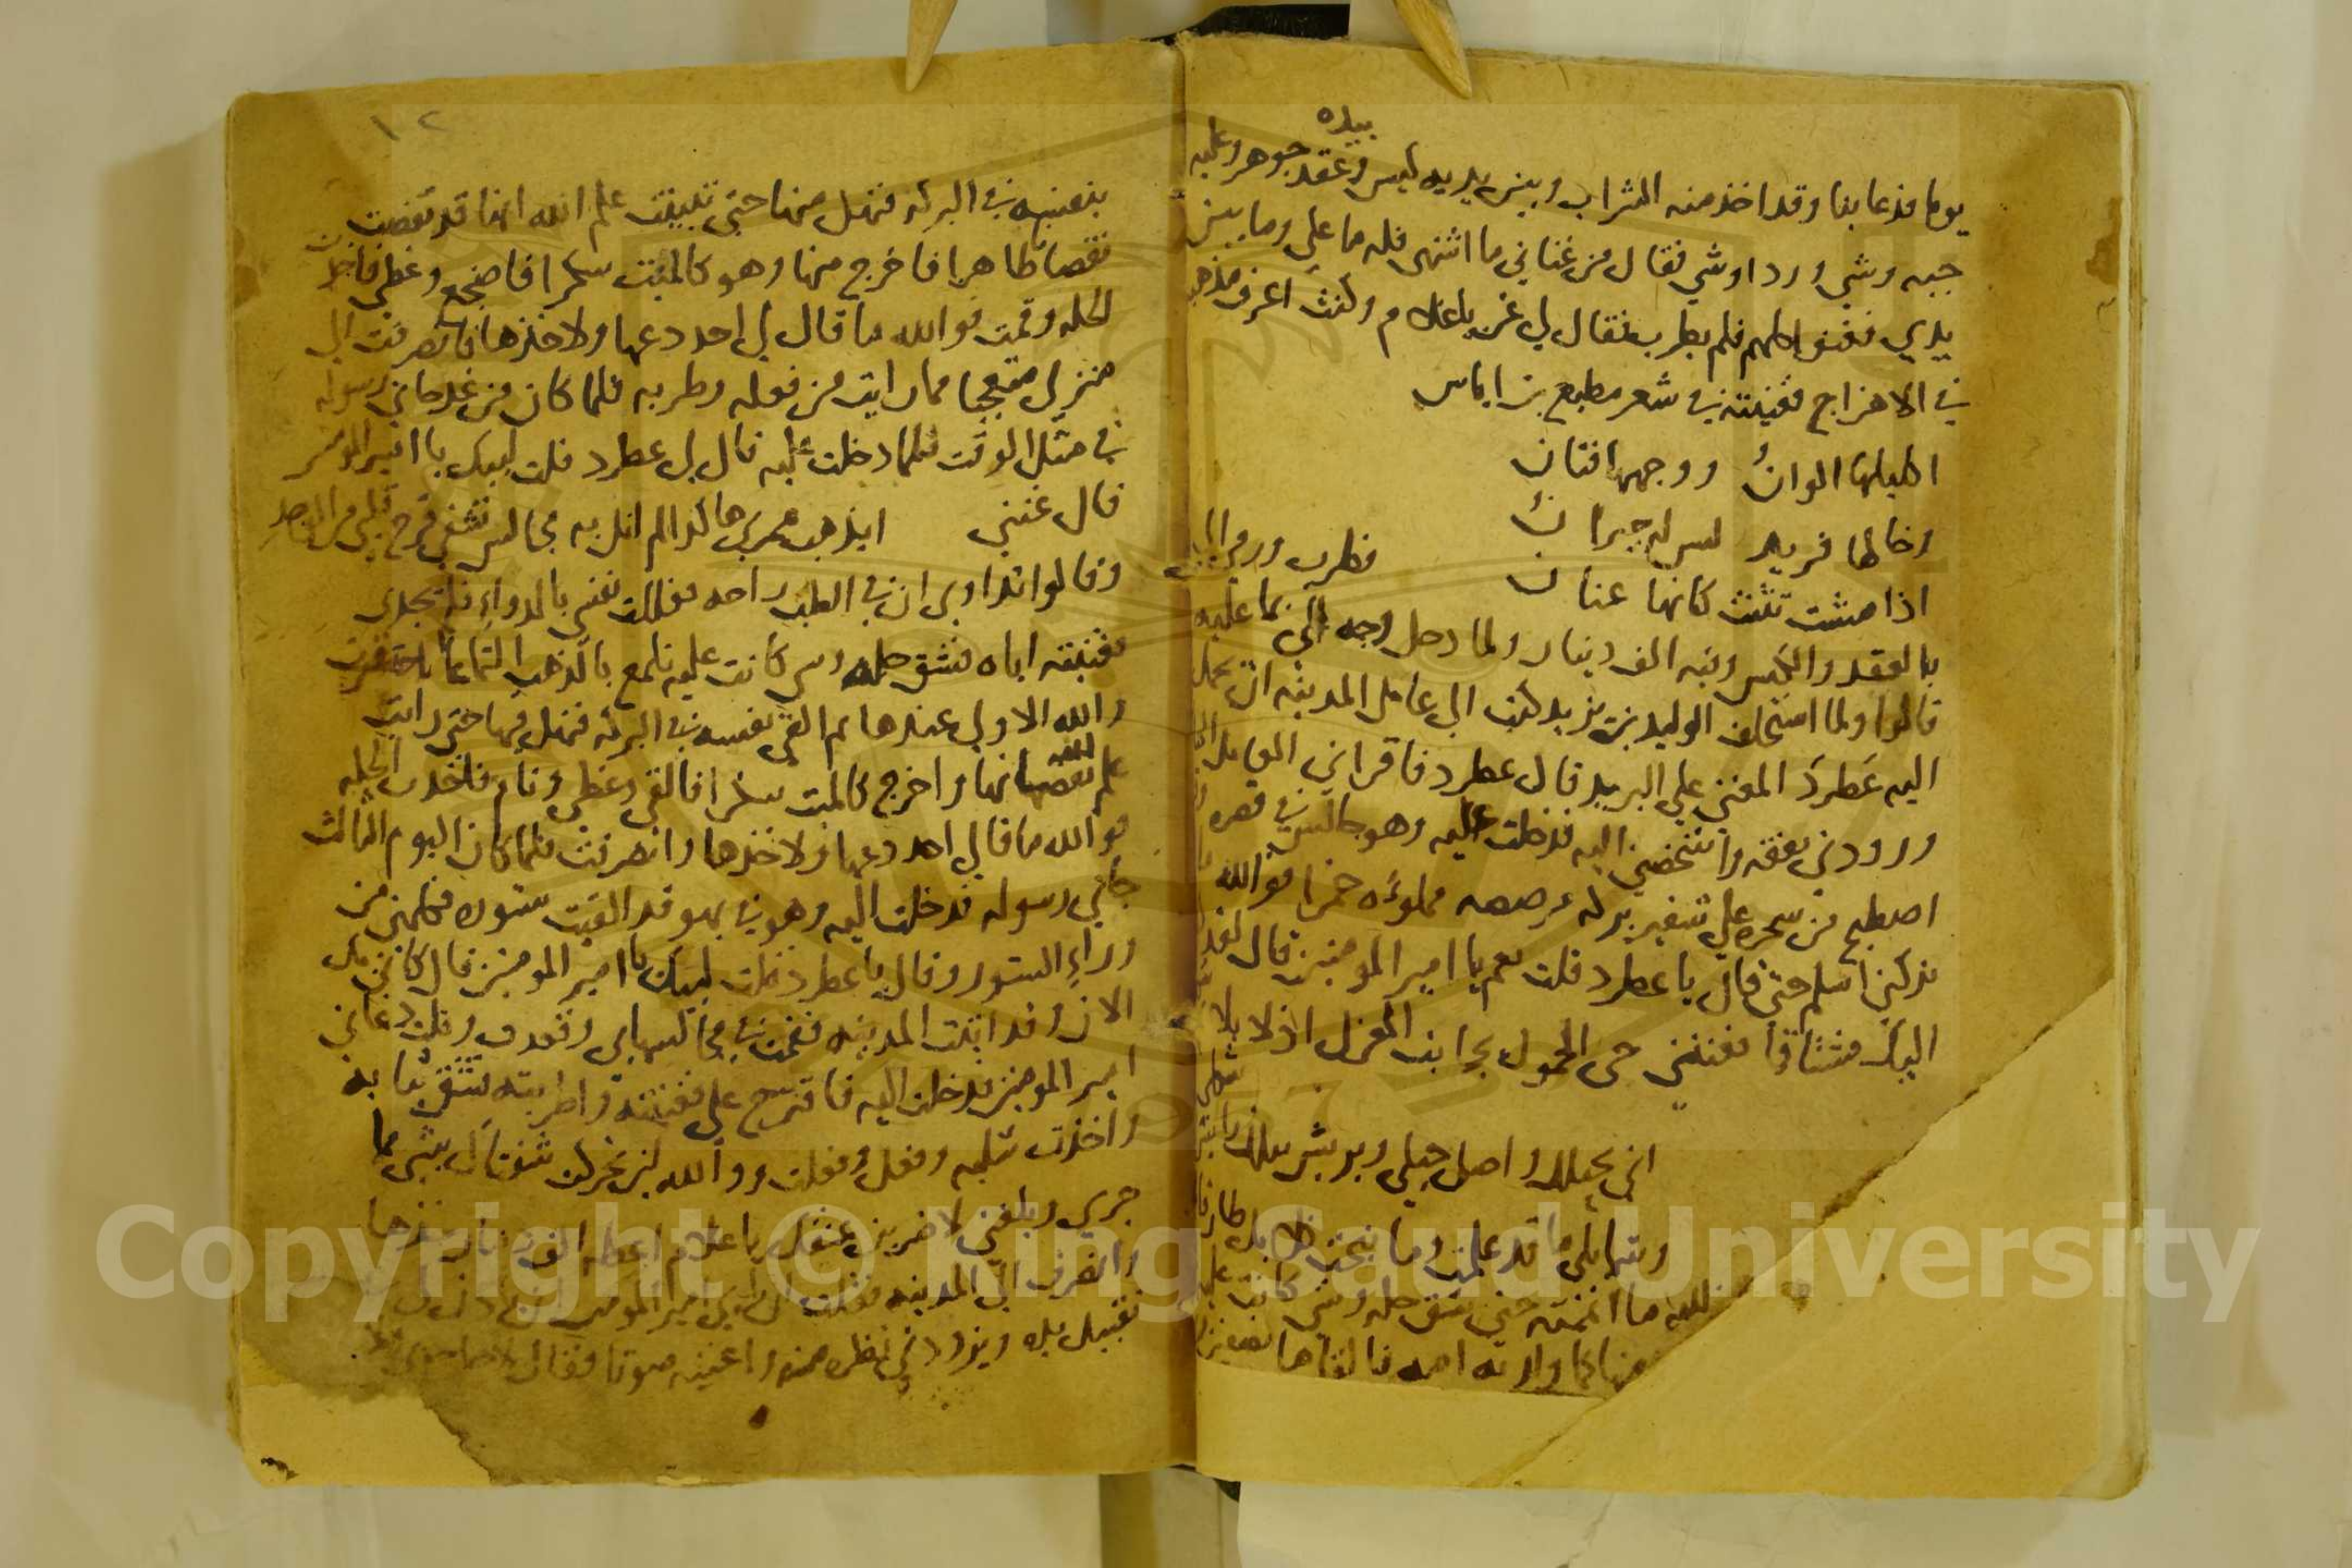 بيده
يوما فدعا بنا وقد اخذ منه الشراب وبين يديه كيس وعقد جوهر وعليه
جبه وشي وردا وشي فقال من غناني ما اشتهى فله ما علي وما بين
يدي فغنوا كلهم فلم يطرب فقال لي غن يا غلام وكنت اعرف مذهبه
في الاهزاج فغنيته في شعر مطيع بن اياس
اكليلها الوان ووجهها فتان
وخالها فريد ليس له جيران
اذا مشت تثنت كانها عنان
فطرب ورمى الي
بالعقد والكيس وفيه الف دينار ولما دخل وجه الي بما عليه
قالوا ولما استخلف الوليد بن يزيد كتب الى عامل المدينه ان يحمل
اليه عطرد المغني علي البريد قال عطرد فاقراني العامل الكتاب
وزودني نفقه واشخصني اليه فدخلت عليه وهو جالس في قصره
اصطبح من سحره علي شفير بركه مرصصه مملوءه خمرا فوالله
تركني اسلم حتى قال يا عطرد قلت نعم يا امير المومنين قال لقد
اليك مشتاقا فغنني حي الحمول بجانب العزل اذ لا يلا
شكلي
اني بحبلك واصل حبلي وبريش نبلك رايش
وشمايلي ما قد علمت وما نبحت كلابك طارقا
فوالله ما اتممته حتى شق حله وشي كانت عليه
بنفسه في البركه فنهل منها حتى تبينت علم الله انها قد نقصت
نقصا ظاهرا فاخرج منها وهو كالميت سكرا فاضجع وغطي فاخذت
الحله وقمت فوالله ما قال لي احد دعها ولا خذها فانصرفت الى
منزلي متعجبا مما رايت من فعله وطربه فلما كان من غد جاني رسوله
في مثل الوقت فلما دخلت عليه قال لي عطرد قلت لبيك يا امير المومنين
قال غنني ايذهب عمري هاكذا لم انل به مجالس تشفي قرح قلبي من الوجد
وقالوا تداوى ان في الطب راحه فعللت نفسي بالدواء فلم يجدي
فغنيته اياه فشق حله وشي كانت عليه تلمع بالذهب التماعا احتقرت
والله الاولى عندها ثم القى نفسه في البركه فنهل فيها حتى رايت
علم الله نقصانها واخرج كالميت سكرا فالقي وغطي ونام فاخذت الحله
فوالله ما قال لي احد دعها ولا خذها وانصرفت فلما كان اليوم الثالث
جاني رسوله فدخلت اليه وهو في بهو قد القيت ستوره فكلمني من
وراء الستور وقال يا عطرد قلت لبيك يا امير المومنين قال كاني بك
الان وقد اتيت المدينه فقمت في مجالسها وقعدت وقلت دعاني
امير المومنين فدخلت اليه فاقترح علي فغنيته واطربته فشق ثيابه
واخذت سلبه وفعل وفعلت ووالله لين تحركت شفتاك بشي مما
جرى وبلغني لاضربن عنقك يا غلام اعطه الف دينار خذها
وانصرف الى المدينه فقلت ان راى امير المومنين ان ياذن لي في
تقبيل يده ويزودني نظره منه واغنيه صوتا فقال